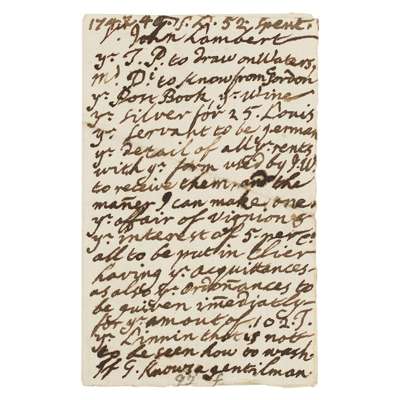 49. 15. L. 52. Spent.
John Lambert
yᵉ J. P. to draw on Waters,
mᵈ Dᵒ to Know from Gordon
yᵉ Post Book yᵉ Wine
yᵉ silver for 25. Louis
yᵉ servant to be german
yᵉ detail of all yᵉ rents
with yᵉ form used by J. W
to receive them and the
mañer I can make
yᵉ affair of
yᵉ interest of 5.
all to be put in Clier
having yᵉ acquittances
as also yᵉ ordoñances to
be guiven im̃ediatly
for yᵉ amount of .102.
yᵉ Linnin that is not
to be seen how to wash.
If G. Knows a gentilman.